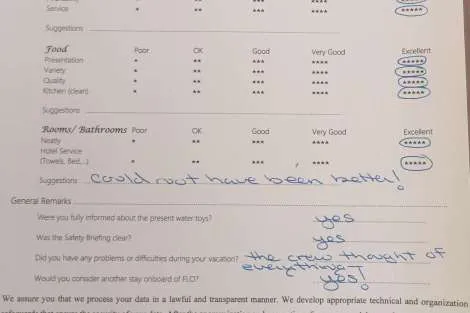 Service * ** *** **** *****
Suggestions
Food Poor OK Good Very Good Excellent
Presentation * ** *** **** *****
Variety * ** *** **** *****
Quality * ** *** **** *****
Kitchen (clean) * ** *** **** *****
Suggestions
Rooms/ Bathrooms Poor OK Good Very Good Excellent
Neatly * ** *** **** *****
Hotel Service
(Towels, Bed,..) * ** *** **** *****
Suggestions could not have been better!
General Remarks
Were you fully informed about the present water toys? yes
Was the Safety Briefing clear? yes
Did you have any problems or difficulties during your vacation? the crew thought of
everything!
Would you consider another stay onboard of FLO? yes!
We assure you that we process your data in a lawful and transparent manner. We develop appropriate technical and organization